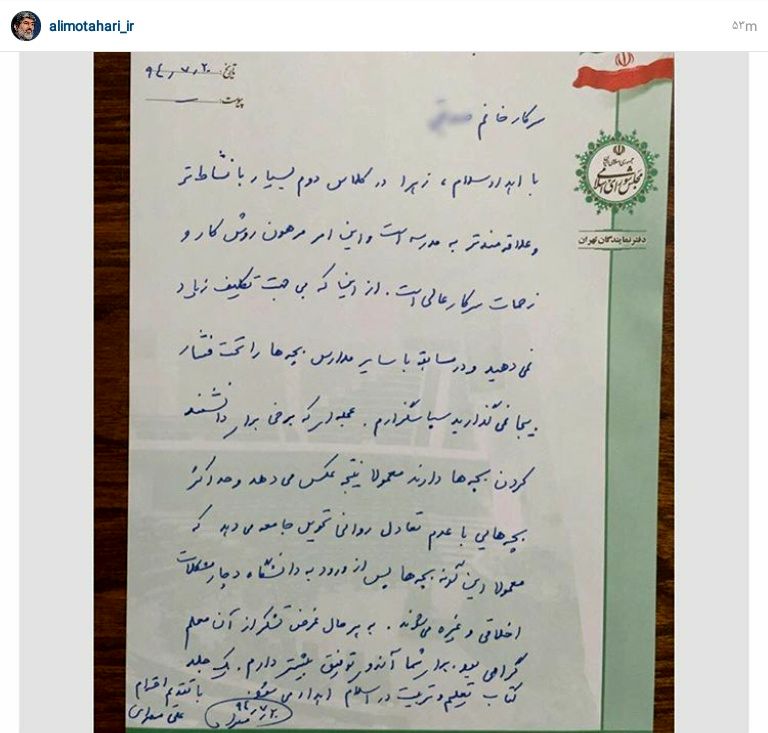 alimotahari_ir
۵۳m
تاریخ: ۹۴/۷/۲۰
پیوست:
جمهوری اسلامی ایران
مجلس شورای اسلامی
دفتر نمایندگان تهران
سرکار خانم
با اهداء سلام، زهرا در کلاس دوم بسیار با نشاط‌تر
و علاقه مندتر به مدرسه است و این امر مرهون روش کار و
زحمات سرکار عالی است. از اینکه بی جهت تکلیف زیاد
نمی دهید و در مسابقه با سایر مدارس بچه ها را تحت فشار
بیجا نمی گذارید سپاسگزارم. عجله ای که برخی برای دانشمند
کردن بچه ها دارند معمولا نتیجه عکس می دهد و حداکثر
بچه هایی با عدم تعادل روانی تحویل جامعه می دهد که
معمولا این گونه بچه ها پس از ورود به دانشگاه دچار مشکلات
اخلاقی و غیره می شوند. به هر حال غرض تشکر از آن معلم
گرامی بود. برای شما آرزوی توفیق بیشتر دارم. یک جلد
کتاب تعلیم و تربیت در اسلام اهداء می شود.
با تقدیم احترام
علی مطهری
۹۴/۷/۲۰